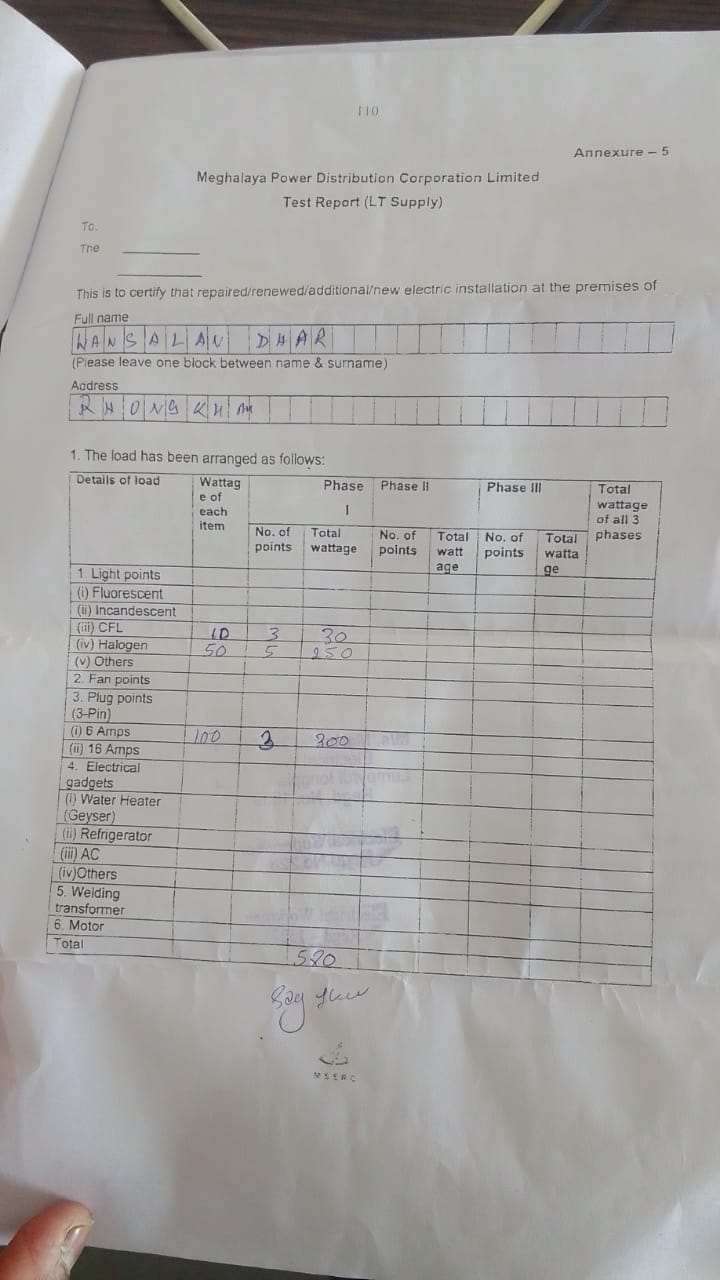 110
Annexure – 5
Meghalaya Power Distribution Corporation Limited
Test Report (LT Supply)
To.
The
This is to certify that repaired/renewed/additional/new electric installation at the premises of
Full name
WANSALAN DHAR
(Please leave one block between name & surname)
Address
RHONGKHAM
1. The load has been arranged as follows:
Details of load Wattag e of each item Phase I Phase II Phase III Total wattage of all 3 phases
No. of points Total wattage No. of points Total watt age No. of points Total watta ge
1 Light points
(i) Fluorescent
(ii) Incandescent
(iii) CFL 10 3 30
(iv) Halogen 50 5 250
(v) Others
2. Fan points
3. Plug points
(3-Pin)
(i) 6 Amps 100 3 300
(ii) 16 Amps
4. Electrical
gadgets
(i) Water Heater
(Geyser)
(ii) Refrigerator
(iii) AC
(iv)Others
5. Welding
transformer
6. Motor
Total 580
Say
MSERC